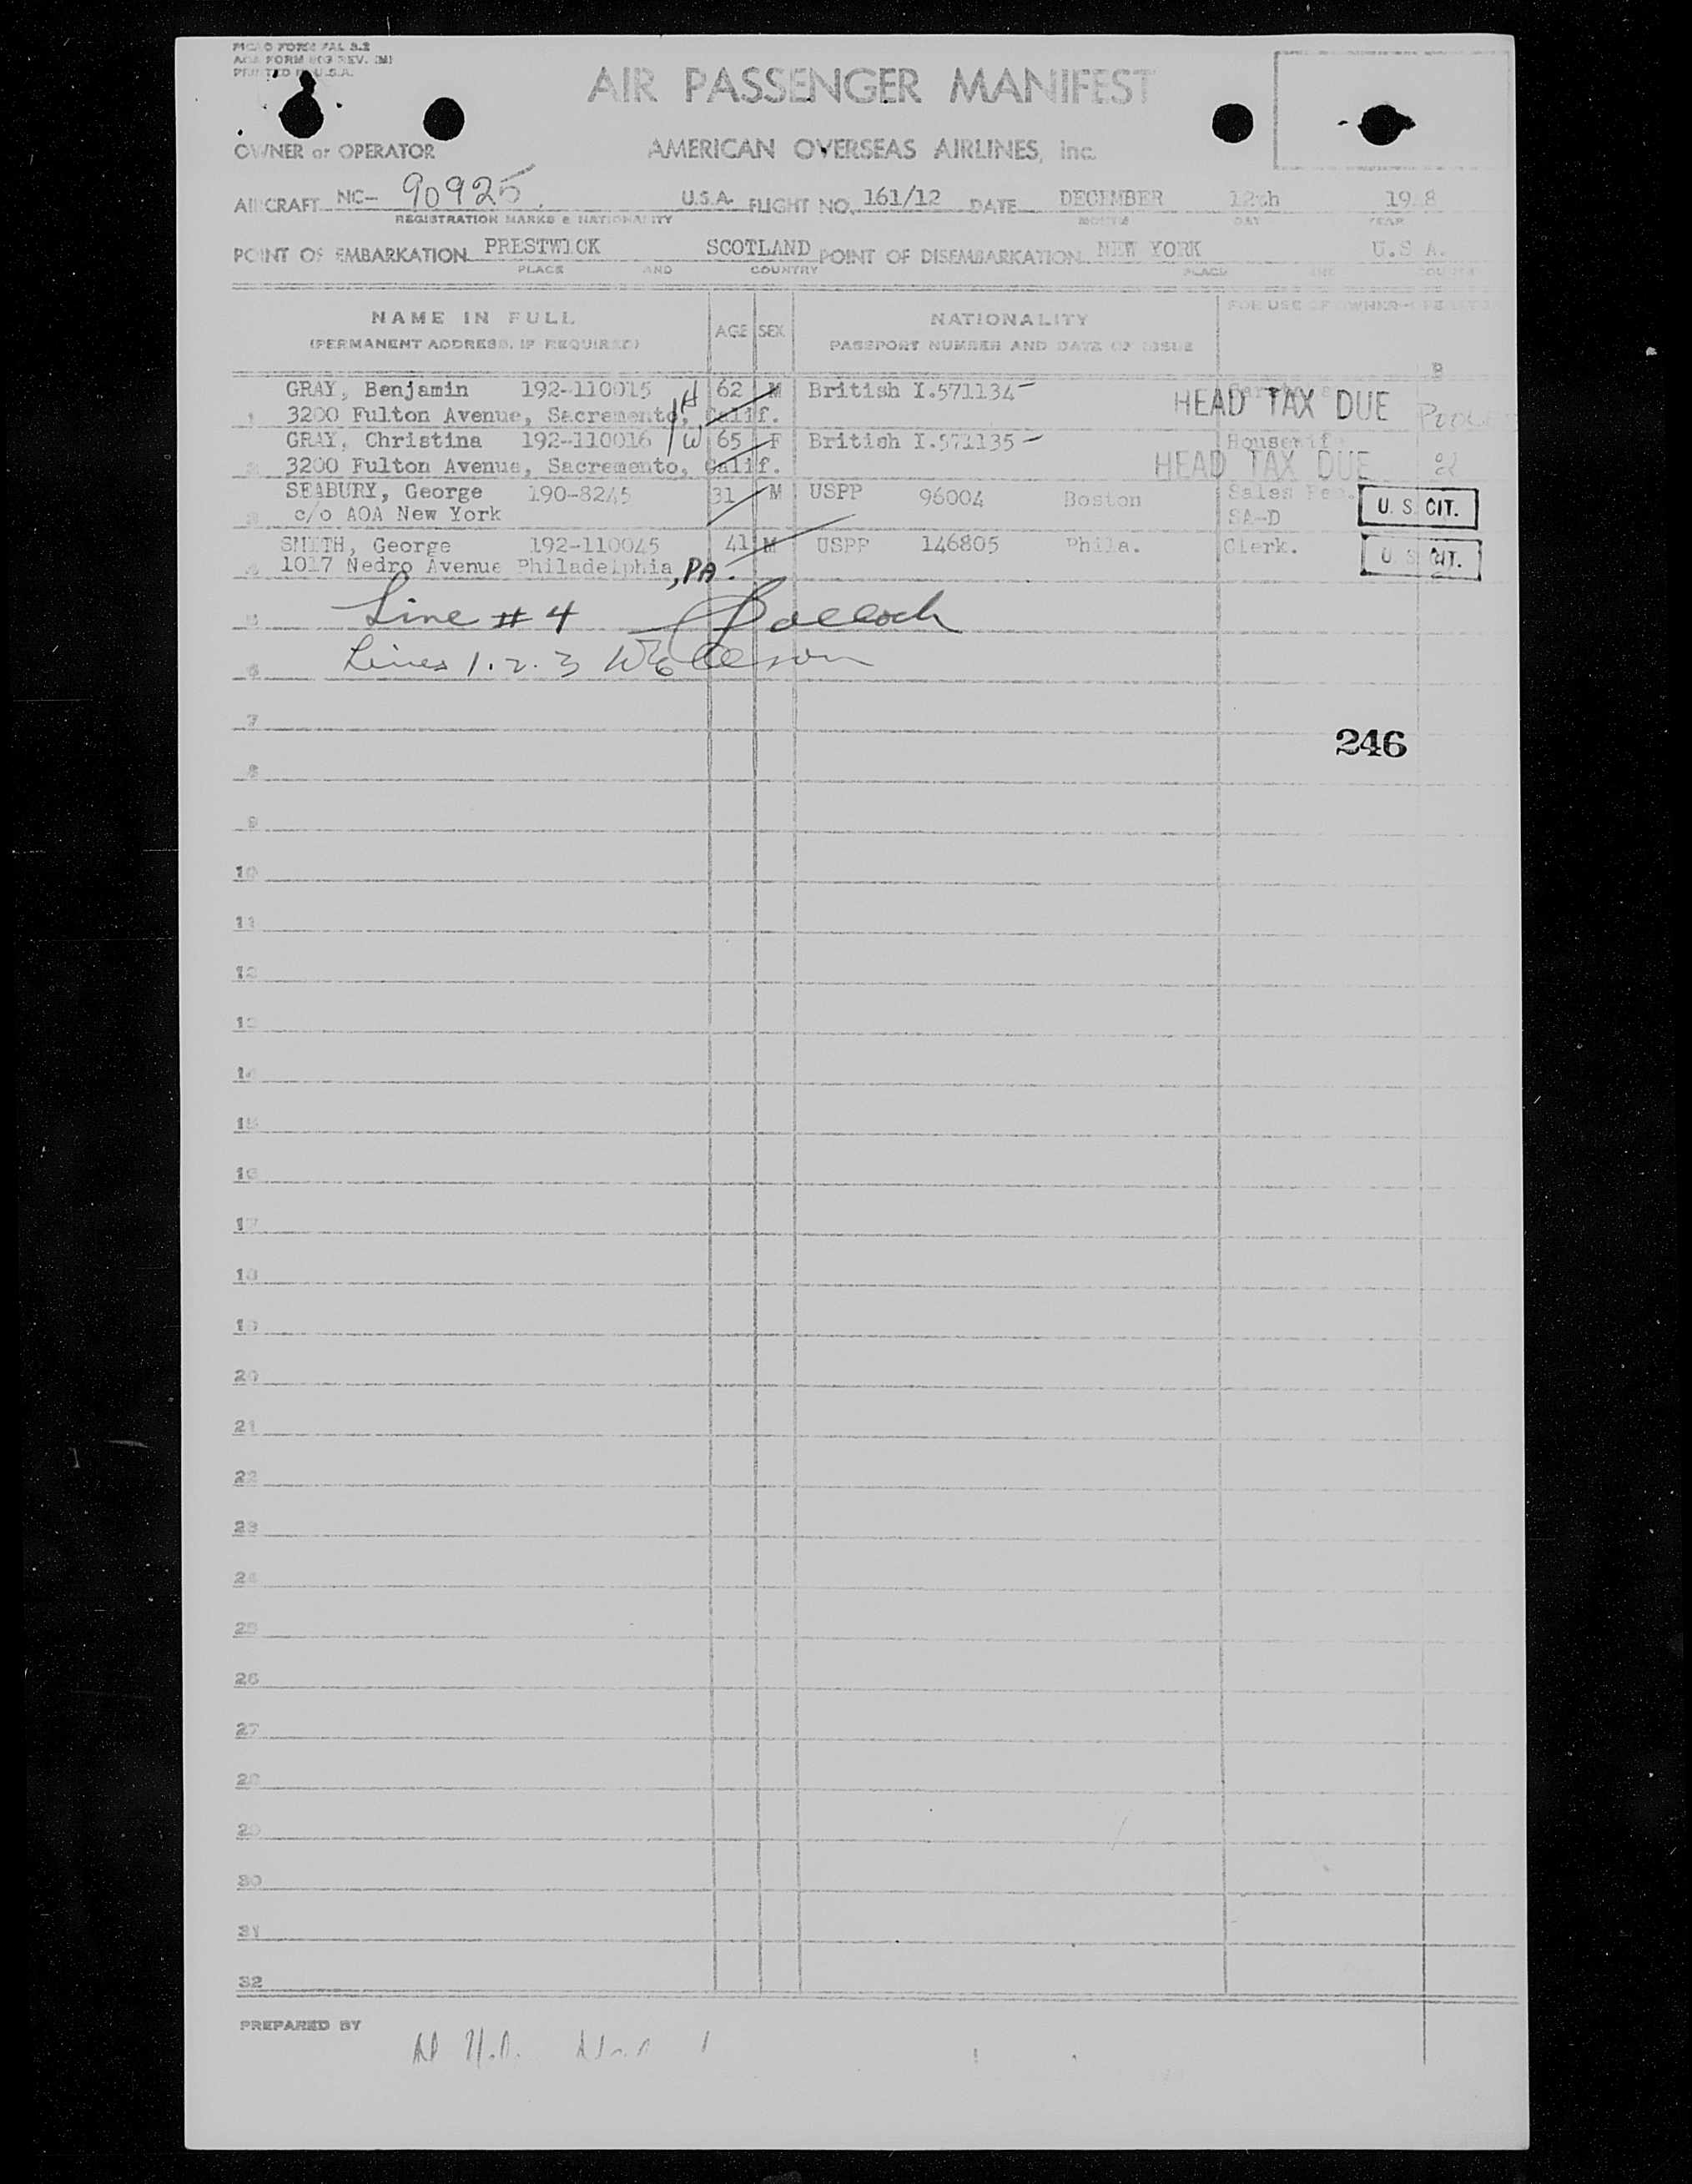 PICAO FORM FAL 3.2
AOA FORM 803 REV. (M)
PRINTED IN U.S.A.
AIR PASSENGER MANIFEST
OWNER or OPERATOR AMERICAN OVERSEAS AIRLINES, Inc.
AIRCRAFT NC- 90925. U.S.A. FLIGHT NO. 161/12 DATE DECEMBER 12th 19 8
REGISTRATION MARKS & NATIONALITY MONTH DAY YEAR
POINT OF EMBARKATION PRESTWICK SCOTLAND POINT OF DISEMBARKATION NEW YORK U.S.A.
PLACE AND COUNTRY PLACE AND COUNTRY
NAME IN FULL AGE SEX NATIONALITY FOR USE OF OWNER-OPERATOR
(PERMANENT ADDRESS, IF REQUIRED) PASSPORT NUMBER AND DATE OF ISSUE
B
GRAY, Benjamin 192-110015 H 62 M British I.571134- HEAD TAX DUE
1 3200 Fulton Avenue, Sacremento, Calif.
GRAY, Christina 192-110016 W 65 F British I.571135- Housewife
2 3200 Fulton Avenue, Sacremento, Calif. HEAD TAX DUE
SEABURY, George 190-8245 31 M USPP 96004 Boston Sales Rep. U. S. CIT.
3 c/o AOA New York SA-D
SMITH, George 192-110045 41 M USPP 146805 Phila. Clerk. U. S. CIT.
4 1017 Nedro Avenue Philadelphia, PA.
5 Line # 4
6 Lines 1. 2. 3
7
246
8
9
10
11
12
13
14
15
16
17
18
19
20
21
22
23
24
25
26
27
28
29
30
31
32
PREPARED BY